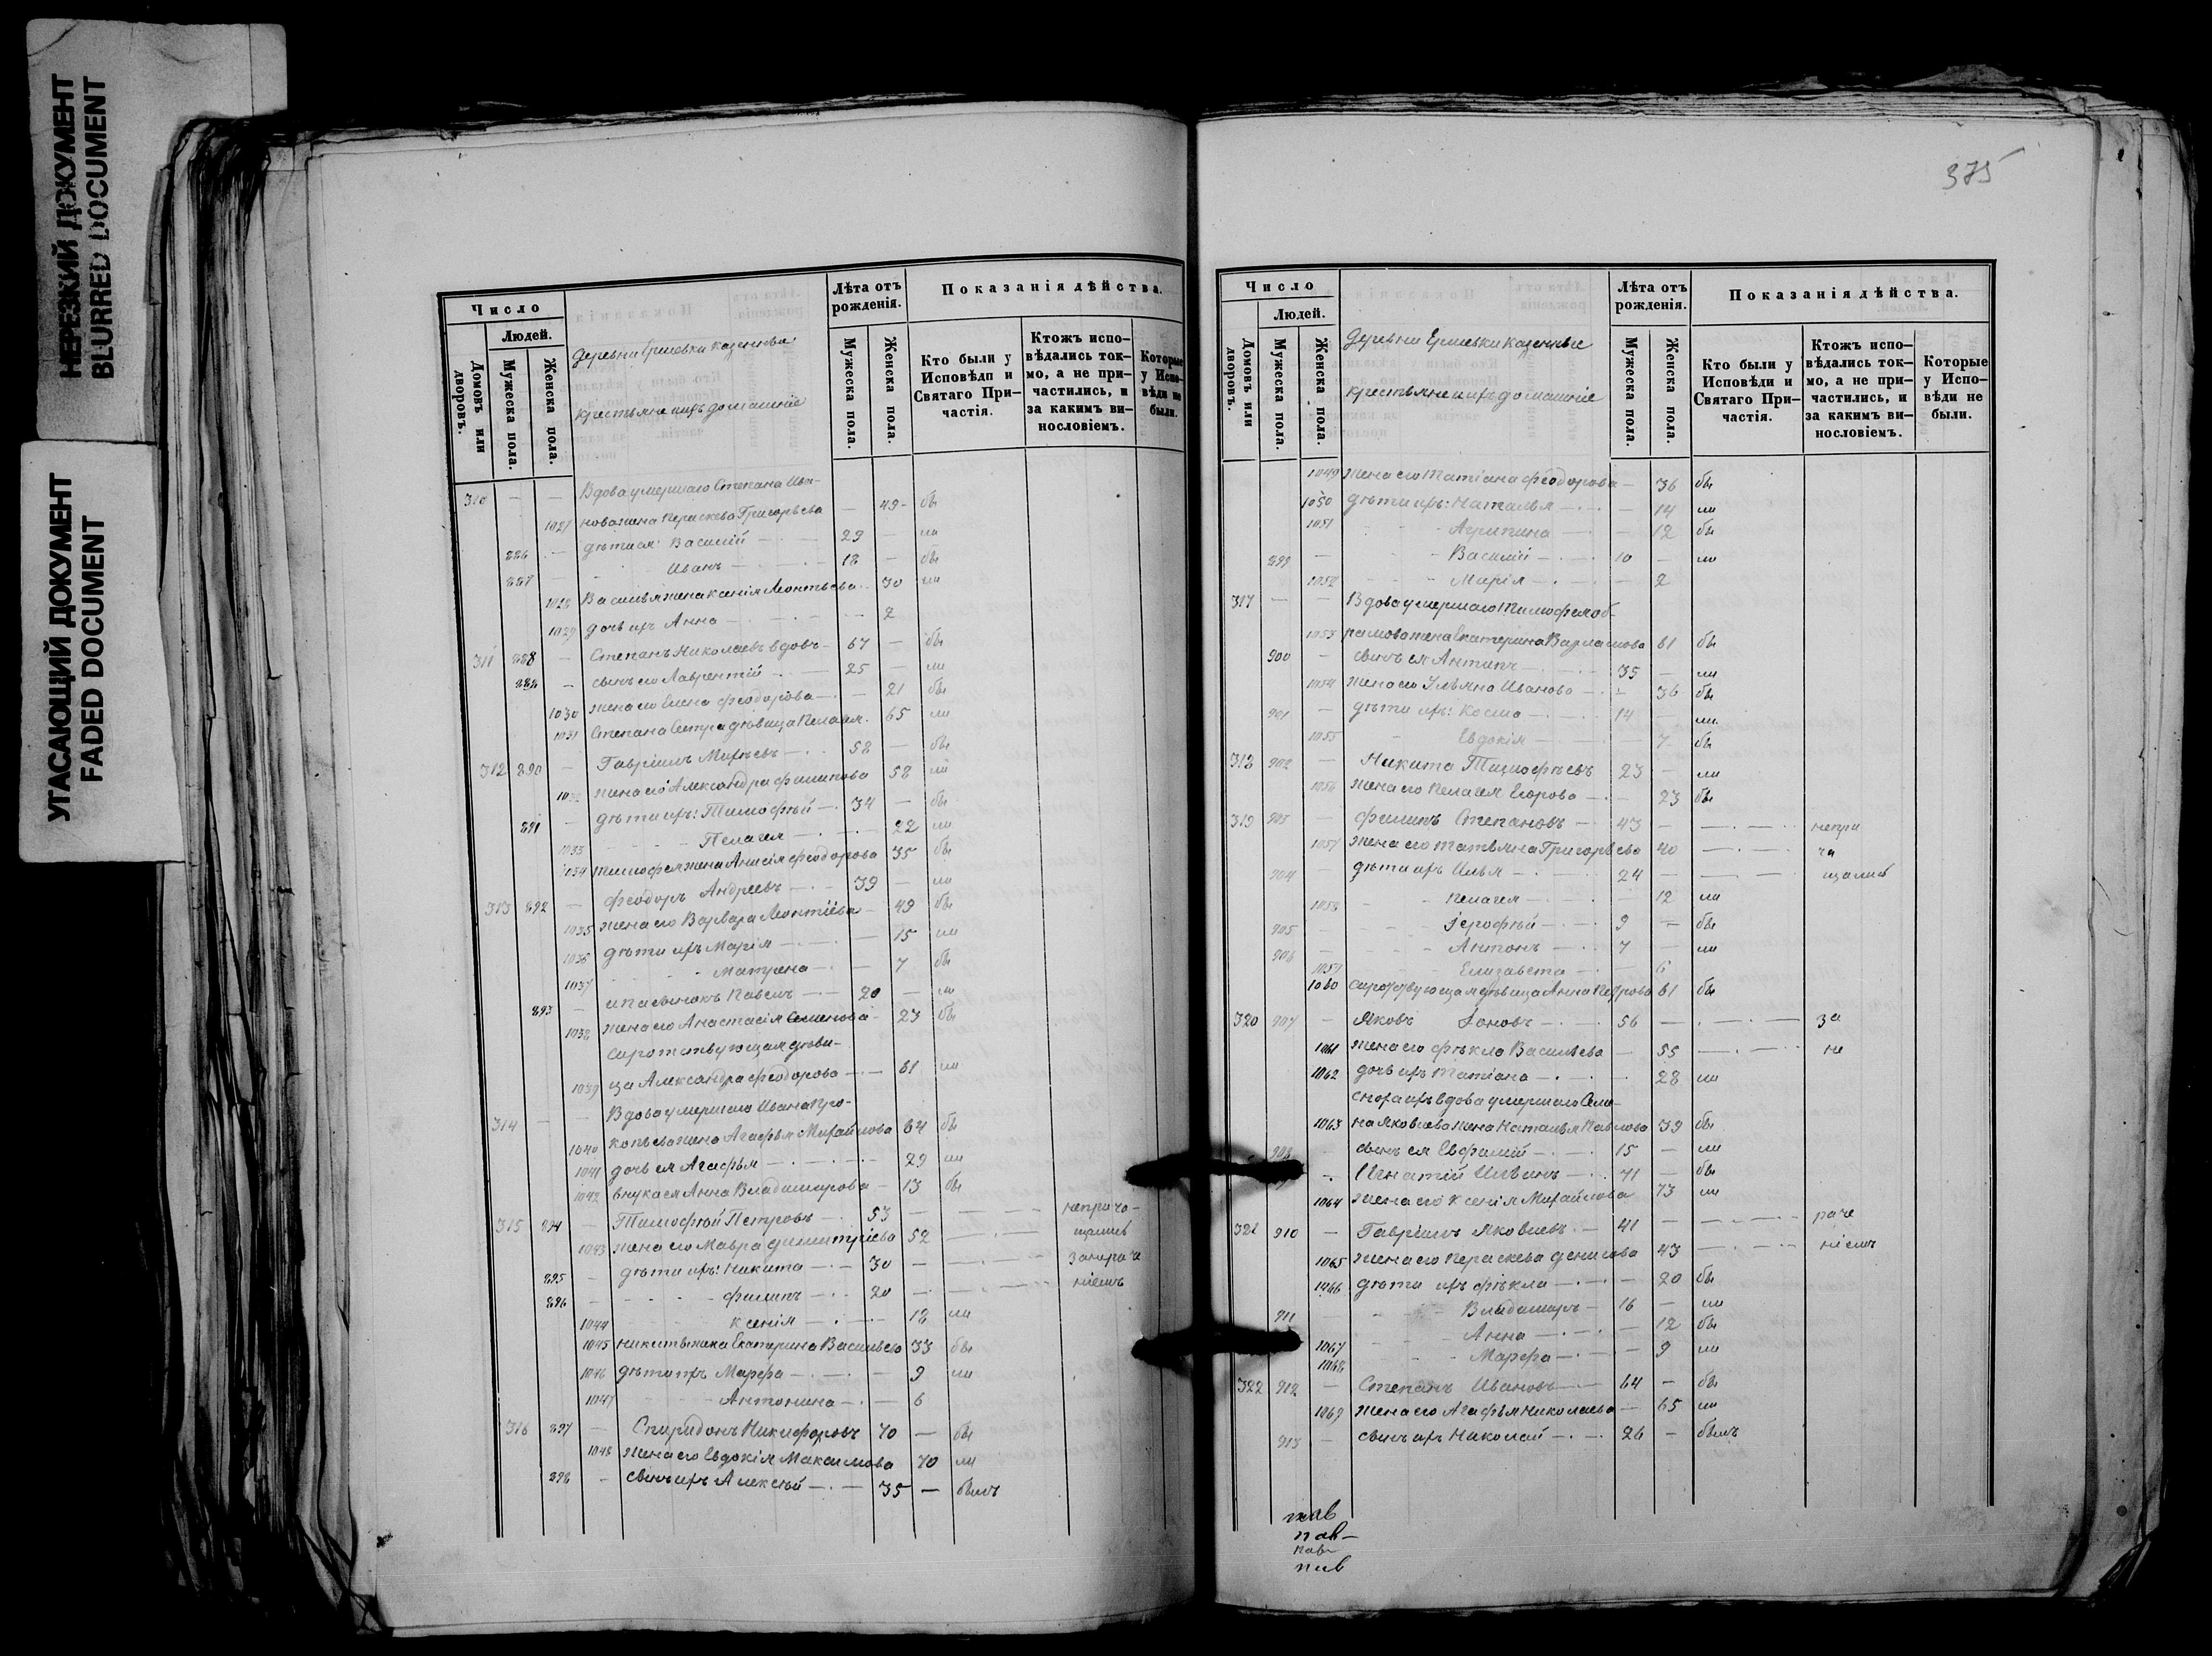 НЕРЕЗКИЙ ДОКУМЕНТ
BLURRED DOCUMENT
УГАСАЮЩИЙ ДОКУМЕНТ
FADED DOCUMENT
Число
Людей.
Домовъ или дворовъ.
Мужеска пола.
Женска пола.
Деревни Ершовки казенные
крестьяне и ихъ домашніе
Лѣта отъ рожденія.
Мужеска пола.
Женска пола.
Показанія дѣйства.
Кто были у Исповѣди и Святаго Причастія.
Ктожъ исповѣдались токмо, а не причастились, и за какимъ винословіемъ.
Которые у Исповѣди не были.
310 — — Вдова умершаго Степана Ива-
1027 нова жена Пераскева Григорьева — 49 - бы
886 — дѣти ея: Василій 29 — ли
887 — Иванъ 18 — бы
1028 Василья жена Ксенія Леонтьева 30 ли
1029 дочь ихъ Анна — 2
311 888 — Степанъ Николаевъ вдовъ - 67 — бы
889 — сынъ его Лаврентій 25 — ли
1030 жена его Елена Феодорова — 21 бы
1031 Степана сестра дѣвица Пелагея 65 ли
312 890 — Гавріилъ 58 — бы
1032 жена его Александра Филипова 58 ли
891 — дѣти ихъ: Тимофѣй — 34 — бы
1033 Пелагея — 22 ли
1034 Тимофея жена Анисія Феодорова 35 бы
313 892 — Феодоръ Андреевъ — 39 — ли
1035 жена его Варвара Леонтіева 49 бы
1036 дѣти ихъ Марія — 15 ли
1037 Матрена — 7 бы
893 — и пасынокъ Павелъ — 20 — ли
1038 жена его Анастасія Семенова 23 бы
Сиротствующая дѣви-
1039 ца Александра Феодорова — 61 ли
314 — — Вдова умершаго Ивана Про-
1040 копьева жена Агафья Михайлова 64 бы
1041 дочь ея Агафья — 29 ли
1042 внука ея Анна Владимирова — 13 бы
315 894 — Тимофѣй Петровъ — 53 — — непричо-
1043 жена его Мавра Димитріева 52 — щались
895 — дѣти ихъ: Никита — 30 — —
896 — Филипъ — 20 — — ніемъ
1044 Ксенія — 18 ли
1045 Никиты жена Екатерина Васильева 33 бы
1046 дѣти ихъ Марфа — 9 ли
1047 Антонина — 6
316 897 — Спиридонъ Никифоровъ 70 — бы
1048 жена его Евдокія Максимова 70 ли
898 — сынъ ихъ Алексѣй — 35 — былъ
375
Число
Людей.
Домовъ или дворовъ.
Мужеска пола.
Женска пола.
Деревни Ершовки казенные
крестьяне и ихъ домашніе
Лѣта отъ рожденія.
Мужеска пола.
Женска пола.
Показанія дѣйства.
Кто были у Исповѣди и Святаго Причастія.
Ктожъ исповѣдались токмо, а не причастились, и за какимъ винословіемъ.
Которые у Исповѣди не были.
1049 жена его Татіана Феодорова — 36 бы
1050 дѣти ихъ: Наталья — 14 ли
1051 Агрипина — 12 бы
899 — Василій — 10 — ли
1052 Марія — 2
317 — — Вдова умершаго Тимофея Аб-
1053 рамова жена Екатерина Варламова 61 бы
900 — сынъ ея Антипъ — 35 — ли
1054 жена его Ульяна Иванова — 36 бы
901 — дѣти ихъ: Косма — 14 — ли
1055 Евдокія — 7 бы
318 902 — Никита Тимофѣевъ 23 — ли
1056 жена его Пелагея Егорова — 23 бы
319 903 — Филипъ Степановъ — 43 — — непри
1057 жена его Татьяна Григорьева 40 — ча
904 — дѣти ихъ Илья — 24 — — щались
1058 Пелагея — 12 ли
905 — Іерофѣй — 9 — бы
906 — Антонъ — 7 — ли
1059 Елизавета — 6
1060 Сиротствующая дѣвица Анна Петрова 61 бы
320 907 — Яковъ Іоновъ — 56 — — за
1061 жена его Фѣкла Васильева — 55 — не
1062 дочь ихъ Татіана — 28 ли
Сноха ихъ вдова умершаго Семе-
1063 на Яковлева жена Наталья Павлова 39 бы
908 — сынъ ея Евфимій — 15 — ли
— Игнатій Ильинъ — 71 — бы
1064 жена его Ксенія Михайлова 73 ли
321 910 — Гавріилъ Яковлевъ — 41 — — раче
1065 жена его Пераскева Денисова 43 — ніемъ
1066 дѣти ихъ Фѣкла — 20 бы
911 — Владимиръ — 16 — ли
1067 Анна — 12 бы
1068 Марфа — 9 ли
322 912 — Степанъ Ивановъ — 64 — бы
1069 жена его Агафья Николаева — 65 ли
913 — сынъ ихъ Николай — 26 — былъ